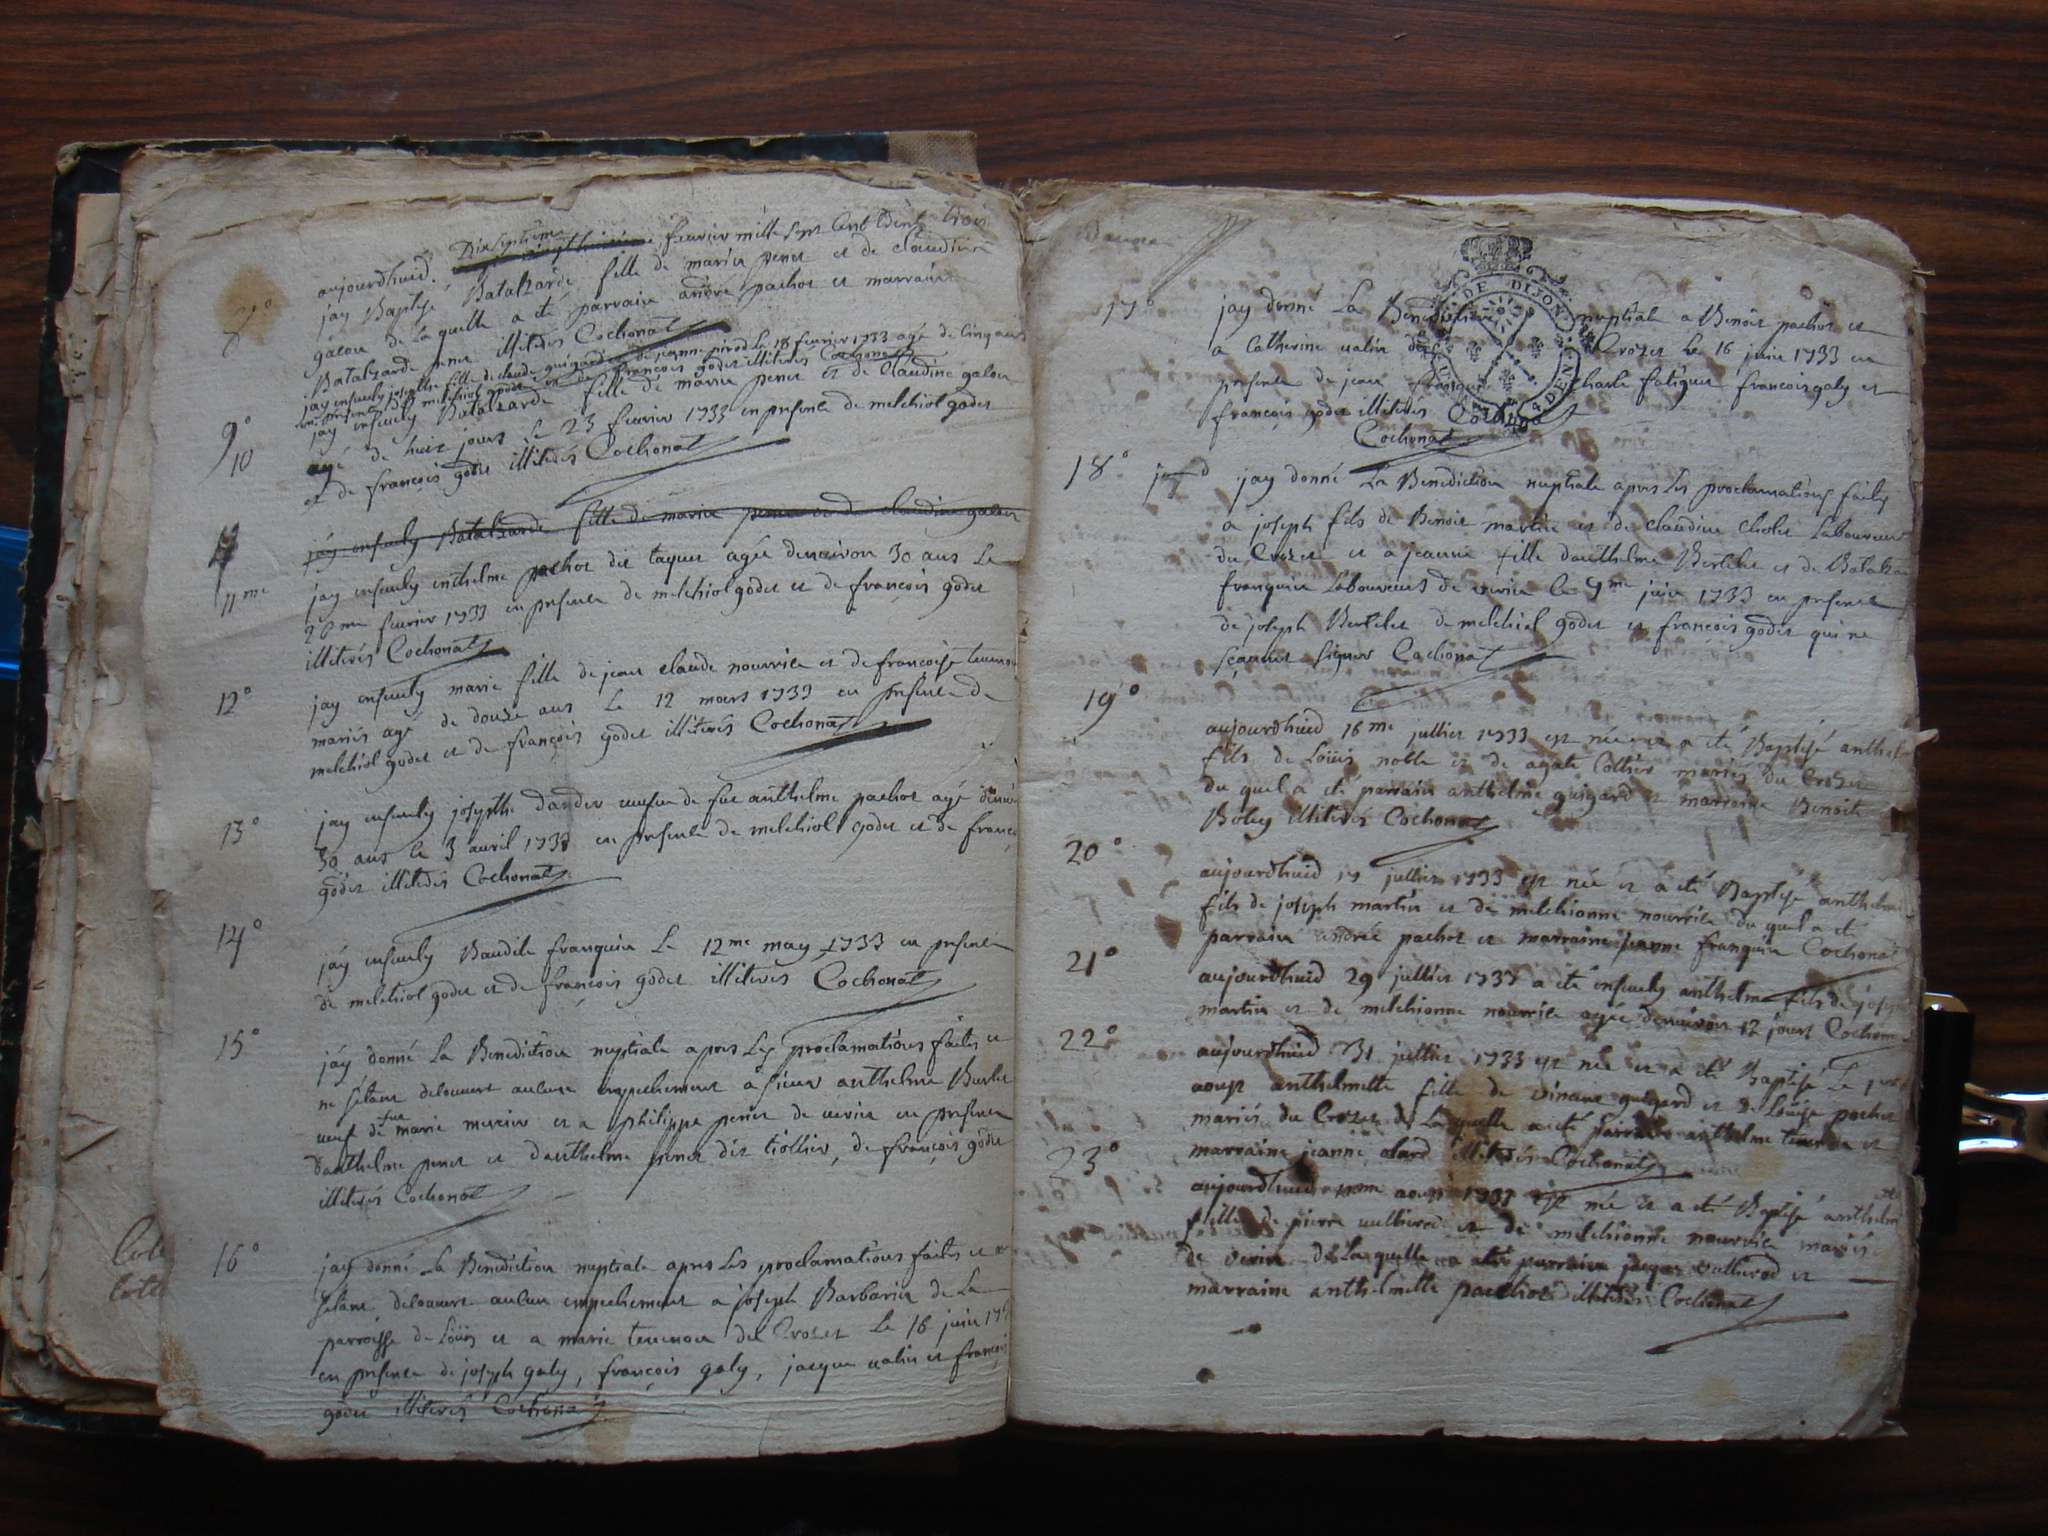 8°
aujourdhuid Dixseptieme fevrier mille sept cent trent trois
jay Baptisé Batalzarde fille de marin penet et de claudine
galou de la quelle a été parrain andre pachot et marraine
Batalzarde penet illiterés Cochonat
9°
jay ensevely josepthe fille de claude guigard et de jeanne pirod Le 18 fevrier 1733 agé de cinq ans
en presence de melchiol godet et de françois godet illiterés Cochonat
10
jay ensevely Batalzarde fille de marin penet et de claudine galou
agé de huit jours le 23 fevrier 1733 en presence de melchiol godet
et de françois godet illiterés Cochonat
jay ensevely Batalzarde fille de marin penet et de claudine galou
11me
jay ensevely anthelme pachot dit taquet agée denviron 30 ans Le
fevrier 1733 en presence de melchiol godet et de françois godet
illiterés Cochonat
12°
jay ensevely marie fille de jean claude nourrice et de francoise
mariés agé de douze ans Le 12 mars 1733 en presence de
melchiol godet et de françois godet illiterés Cochonat
13°
jay ensevely josepthe dandet veufve de fue anthelme pachot agé
30 ans le 3 avril 1733 en presence de melchiol godet et de franç
godet illiterés Cochonat
14°
jay ensevely Baudile franquin Le 12me may 1733 en presence
de melchiol godet et de françois godet illiterés Cochonat
15°
jay donné La Benediction nuptiale apres Les proclamations faites et
ne setant decouvert aucune empechement a sieur anthelme
veuf de fue marie mercier et a philippe penet de virin en presence
danthelme penet et danthelme penet dit tiollier, de françois godet
illiterés Cochonat
16°
jay donné La Benediction nuptiale apres Les proclamations faites et ne
setant decouvert aucun empechement a joseph Barbarin de La
parroisse de Loüis et a marie tevenon del Crozet Le 16 juin
en presence de joseph galy, françois galy, jacque valin et françois
godet illiterés Cochonat
17°
jay donné La Benediction nuptiale a Benoit pachot et
a Catherine valin Crozet Le 16 juin 1733 en
presence de jean charle fatigue françois galy et
françois godet illiterés
Cochonat
DE DIJON
18°
jay donné La Benediction nuptiale apres Les proclamations faites
a joseph fils de Benoit martin et de claudine Laboureur
du Crozet et a jeanne fille danthelme Berlliet et de
franquin Laboureurs de virin le 9me juin 1733 en presence
de joseph Berlliet de melchiol godet et françois godet qui ne
scavent signer Cochonat
19°
aujourdhuid 16me jullier 1733 est née et a été Baptisé
fils de Loüis noble et de agate mariés du Crozet
du quel a été parrain anthelme guigard et marraine Benoite
illiterés Cochonat
20°
aujourdhuid 17 jullier 1733 est née et a été Baptisé
fils de joseph martin et de melchionne nourrice du quel a été
parrain andrée pachot et marraine jeanne franquin Cochonat
21°
aujourdhuid 29 jullier 1733 a été ensevely anthelme fils de
martin et de melchionne nourrice agée denviron 12 jours
22°
aujourdhuid 31 jullier 1733 est née et a été Baptisé Le
aoust anthelmette fille de vincent guigard et de Louise pachot
mariés du Crozet de La quelle a été parrain anthelme tevenon et
marraine jeanne alard illiterés Cochonat
23°
aujourdhuid aoust 1733 est née et a été Baptisé
fille de pierre vullierod et de melchionne nourrice mariés
de virin de La quelle a été parrain jacque vullierod et
marraine anthelmette pachot illiterés Cochonat